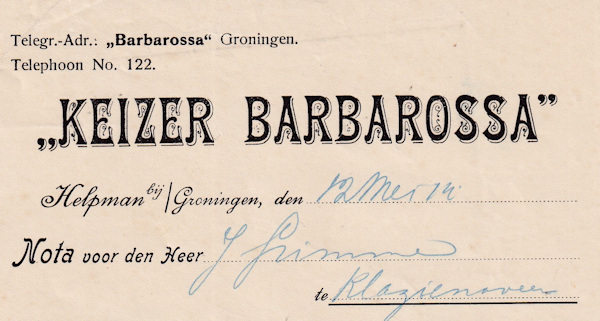 Telegr.-Adr.: „Barbarossa“ Groningen.
Telephoon No. 122.
„KEIZER BARBAROSSA”
Helpman bij/Groningen, den 12 Mei 14.
Nota voor den Heer J Grimme
te Klazienaveen